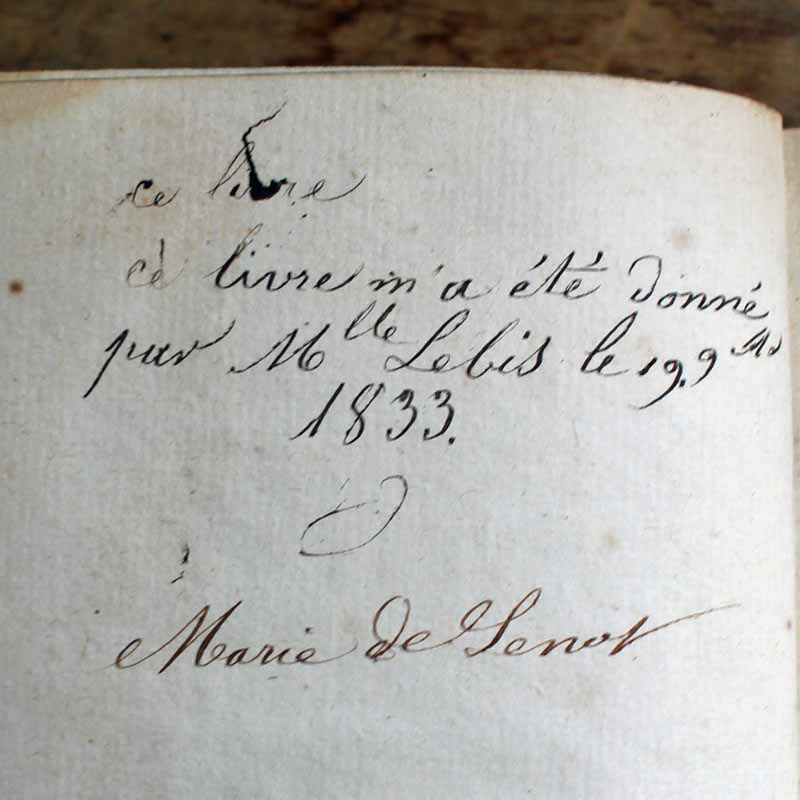 ce livre
ce livre m'a été donné
par Mlle Lebis le 19. 9bre
1833.
Marie de Senot